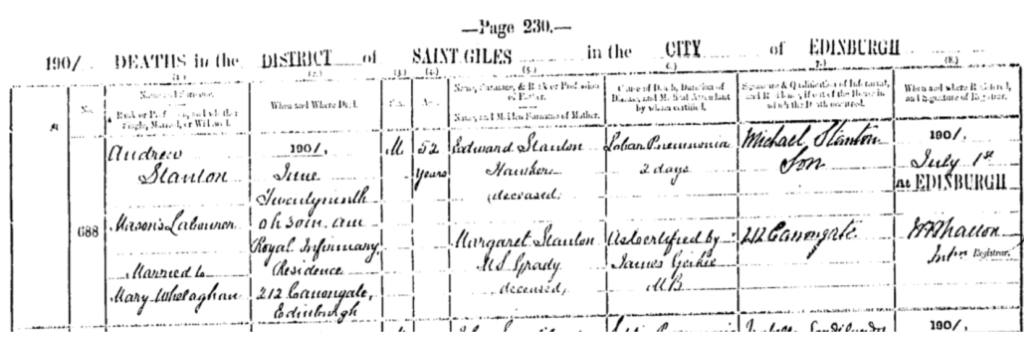 —Page 230.—
1901 DEATHS in the DISTRICT of SAINT GILES in the CITY of EDINBURGH
(1.) (2.) (3.) (4.) (5.) (6.) (7.) (8.)
No. Name and Surname. When and Where Died. Sex. Age. Name, Surname, & Rank or Profession of Father. Cause of Death, Duration of Disease, and Medical Attendant by whom certified. Signature & Qualification of Informant, and Residence, if out of the House in which the Death occurred. When and where Registered, and Signature of Registrar.
Rank or Profession, and whether Single, Married, or Widowed. Name, and Maiden Surname of Mother.
Andrew 1901, M 52 Edward Stanton Lobar Pneumonia Michael Stanton 1901,
Stanton June years Hawker 2 days Son July 1st
Twentyninth (deceased) At EDINBURGH
688 Mason's Labourer 0h 50m. am
Royal Infirmary Margaret Stanton As certified by 212 Canongate
Married to Residence M.S. Grady James Geikie Intm Registrar.
Mary Whelaghan 212 Canongate, deceased, MB
Edinburgh
1901,